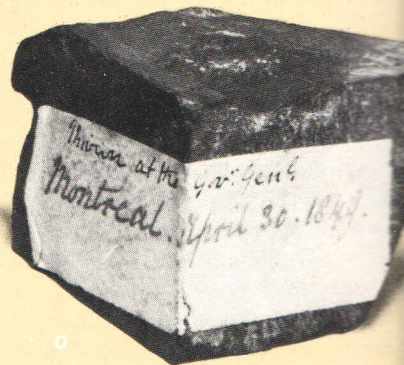 Thrown at the Govr. Genl.
Montreal. April 30. 1849.
o